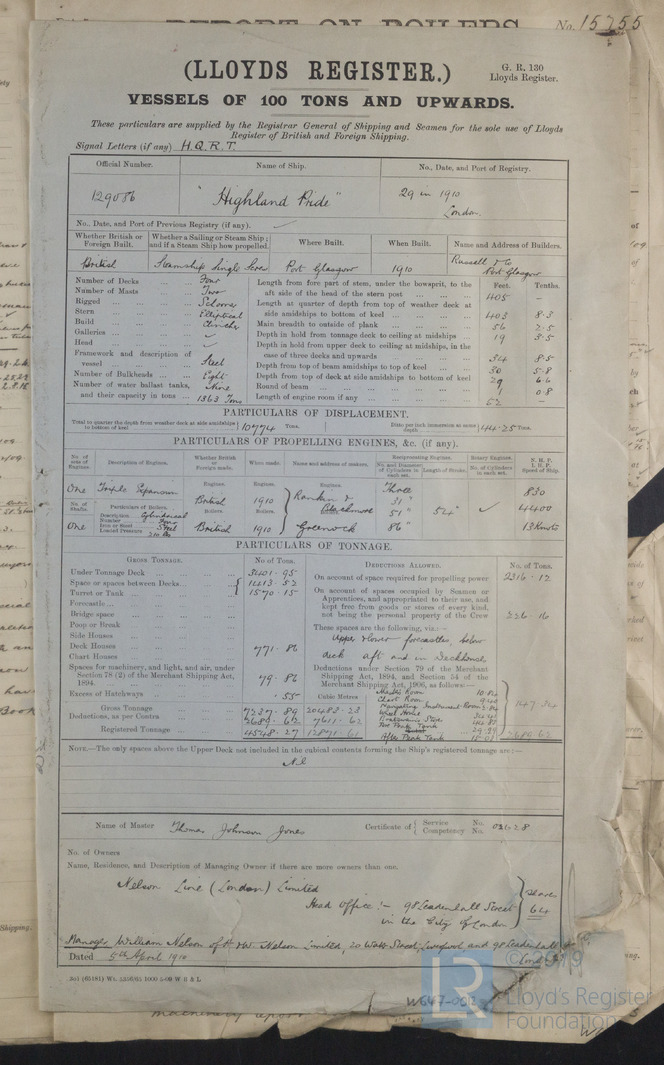 REPORT ON BOILERS No. 15755
(LLOYDS REGISTER.)
G. R. 130
Lloyds Register.
VESSELS OF 100 TONS AND UPWARDS.
These particulars are supplied by the Registrar General of Shipping and Seamen for the sole use of Lloyds
Register of British and Foreign Shipping.
Signal Letters (if any) H.Q.R.T.
Official Number. Name of Ship. No., Date, and Port of Registry.
129086 "Highland Pride" 29 in 1910
London.
No., Date, and Port of Previous Registry (if any).
Whether British or Foreign Built. Whether a Sailing or Steam Ship; and if a Steam Ship how propelled. Where Built. When Built. Name and Address of Builders.
British Steamship Single Screw Port Glasgow 1910 Russell & Co Port Glasgow
Number of Decks Four
Number of Masts Two
Rigged
Stern Elliptical
Build Clincher
Galleries
Head
Framework and description of vessel Steel
Number of Bulkheads Eight
Number of water ballast tanks, and their capacity in tons Nine 1363 Tons
Feet. Tenths.
Length from fore part of stem, under the bowsprit, to the aft side of the head of the stern post 405 –
Length at quarter of depth from top of weather deck at side amidships to bottom of keel 403 8·3
Main breadth to outside of plank 56 2·5
Depth in hold from tonnage deck to ceiling at midships 19 3·5
Depth in hold from upper deck to ceiling at midships, in the case of three decks and upwards 34 8·5
Depth from top of beam amidships to top of keel 30 5·8
Depth from top of deck at side amidships to bottom of keel 29 6·6
Round of beam 1 0·8
Length of engine room if any 52 –
PARTICULARS OF DISPLACEMENT.
Total to quarter the depth from weather deck at side amidships to bottom of keel 10774 Tons. Ditto per inch immersion at same depth 44·25 Tons.
PARTICULARS OF PROPELLING ENGINES, &c. (if any).
No. of sets of Engines. Description of Engines. Whether British or Foreign made. When made. Name and address of makers. Reciprocating Engines. Rotary Engines. N.H.P. I.H.P. Speed of Ship.
No. and Diameter of Cylinders in each set. Length of Stroke. No. of Cylinders in each set.
Engines. Engines. Engines.
One Triple Expansion British 1910 Rankin & Blackmore Three 31" 830
No. of Shafts. Particulars of Boilers. Boilers. Boilers. Boilers. 51" 54" 4400
Description Cylindrical
Number Four
Iron or Steel Steel
Loaded Pressure
One British 1910 Greenock 86" 13 Knots
PARTICULARS OF TONNAGE.
GROSS TONNAGE. No. of Tons. DEDUCTIONS ALLOWED. No. of Tons.
Under Tonnage Deck 3401·95
Space or spaces between Decks 1413·52
Turret or Tank 1570·15
Forecastle
Bridge space
Poop or Break
Side Houses
Deck Houses 771·86
Chart Houses
Spaces for machinery, and light, and air, under Section 78 (2) of the Merchant Shipping Act, 1894. 79·86
Excess of Hatchways ·55
Cubic Metres
Gross Tonnage 7237·89 20483·23
Deductions, as per Contra 2689·62 7611·62
Registered Tonnage 4548·27 12871·61
On account of space required for propelling power 2316·12
On account of spaces occupied by Seamen or Apprentices, and appropriated to their use, and kept free from goods or stores of every kind, not being the personal property of the Crew 226·16
These spaces are the following, viz.:—
Upper & lower forecastles, below
deck aft and in Deckhouse
Deductions under Section 79 of the Merchant Shipping Act, 1894, and Section 54 of the Merchant Shipping Act, 1906, as follows:—
Master's Room
Chart Room
Navigating Instrument Room
Wheel House
Boatswain's Store
Fore Peak Tank
After Peak Tank
147·34
2689·62
NOTE.—The only spaces above the Upper Deck not included in the cubical contents forming the Ship's registered tonnage are:—
Nil
Name of Master Thomas Johnson Jones Certificate of { Service No. Competency No. 021528
No. of Owners
Name, Residence, and Description of Managing Owner if there are more owners than one.
Nelson Line (London) Limited
Head Office:- 98 Leadenhall Street
in the City of London
Shares
64
Manager William Nelson of H & W Nelson Limited, 20 Water Street, Liverpool and 98 Leadenhall St
London
Dated 5th April 1910
301 (65181) Wt. 5356/65 1000 5-09 W B & L
W647-0012
© 2019
LR
Lloyd's Register
Foundation